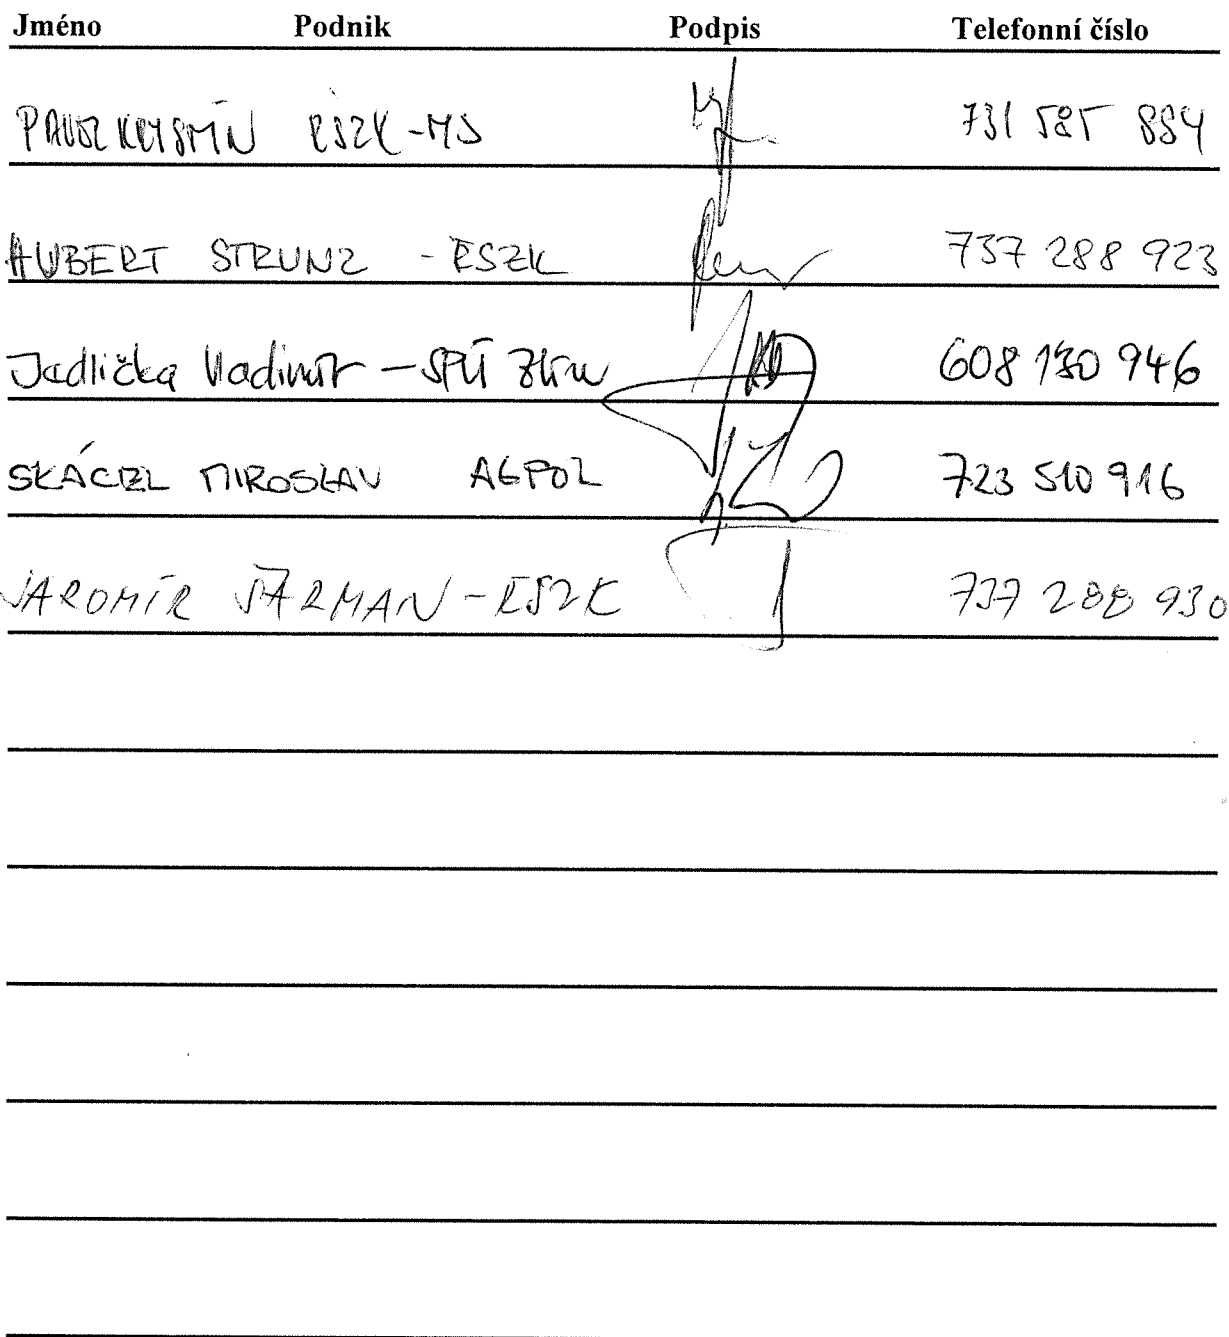 Jméno Podnik Podpis Telefonní číslo
PAVEL ŘSZK-MS 731 585 884
HUBERT STRUNZ - ŘSZK 737 288 923
Jedlička Vladimír - SPÚ Zlín 608 130 946
SKÁCEL MIROSLAV AGPOL 723 510 916
JAROMÍR ŠARMAN - ŘSZK 737 288 930